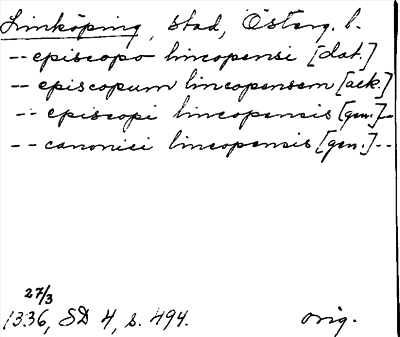 Linköping, stad, Österg. l.
-- episcopo lincopensi [dat.]
-- episcopum lincopensem [ack.]
-- episcopi lincopensis [gen.]--
-- canonici lincopensis [gen.]--
27/3
1336, SD 4, s. 494. orig.